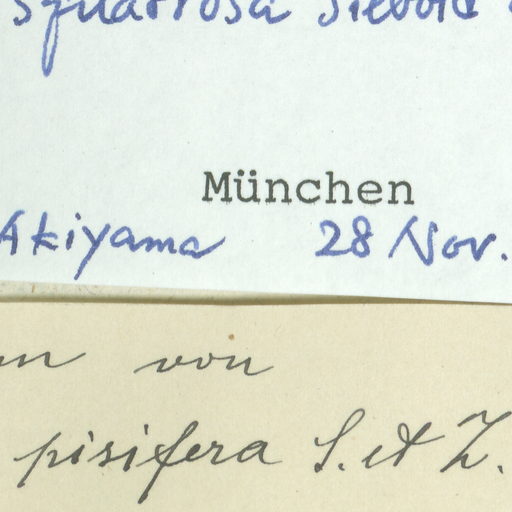 squarrosa Siebold
München
Akiyama 28 Nov.
von
pisifera S. et Z.